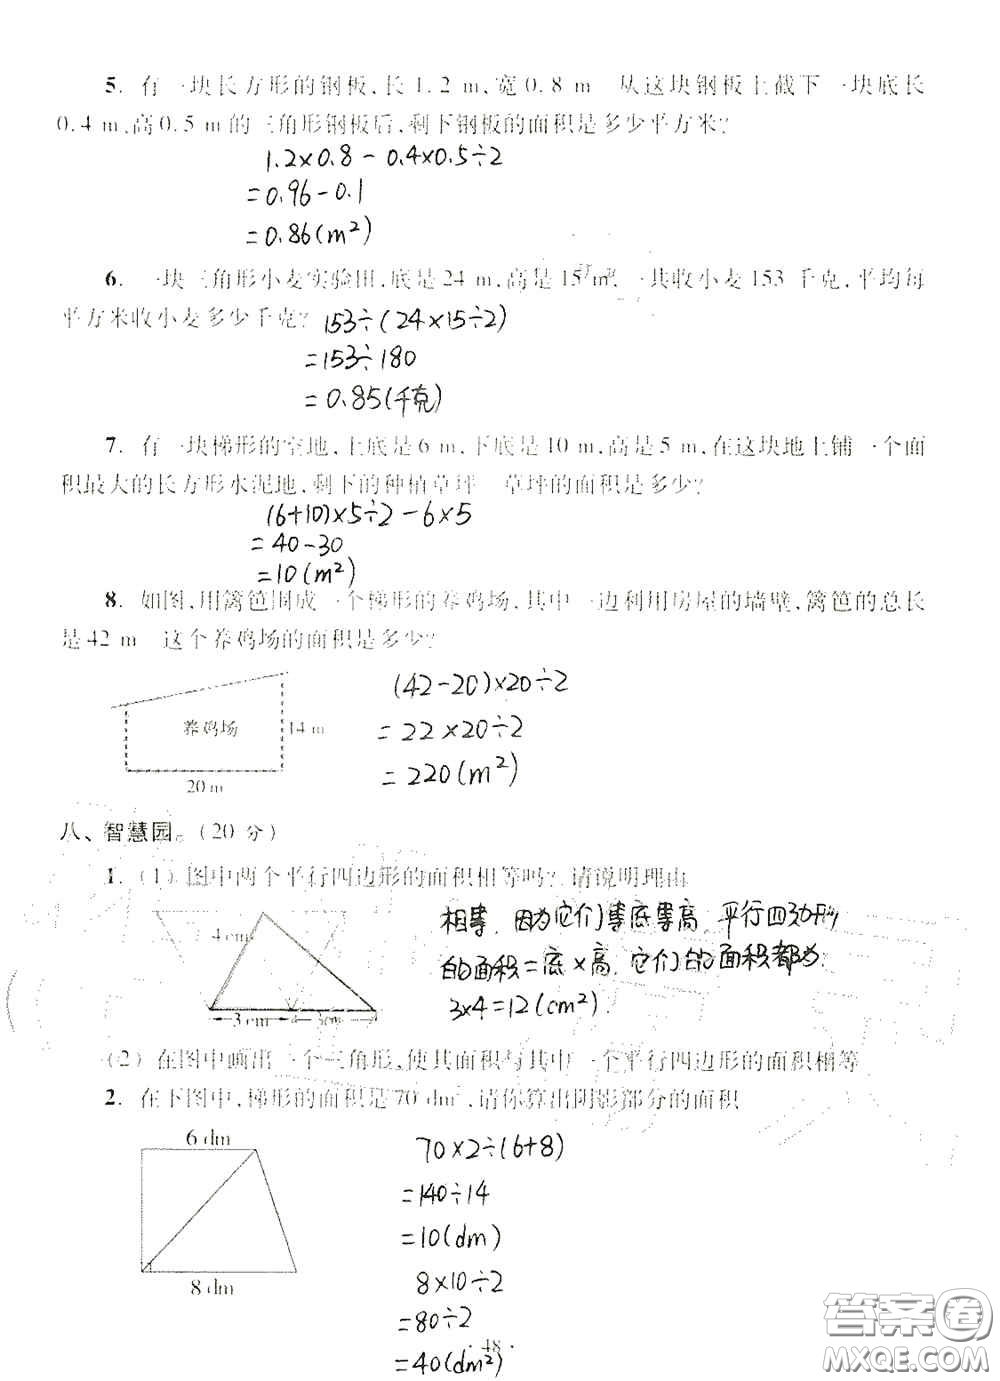 5. 有一块长方形的钢板,长1.2 m、宽0.8 m 从这块钢板上截下一块底长
0.4 m,高0.5 m的三角形钢板后,剩下钢板的面积是多少平方米?
1.2×0.8-0.4×0.5÷2
=0.96-0.1
=0.86(m²)
6. 一块三角形小麦实验田,底是24 m,高是15 m,一共收小麦153 千克,平均每
平方米收小麦多少千克?
153÷(24×15÷2)
=153÷180
=0.85(千克)
7. 有一块梯形的空地,上底是6 m,下底是10 m,高是5 m,在这块地上铺一个面
积最大的长方形水泥地,剩下的种植草坪 草坪的面积是多少?
(6+10)×5÷2-6×5
=40-30
=10(m²)
8. 如图,用篱笆围成一个梯形的养鸡场,其中一边利用房屋的墙壁,篱笆的总长
是42 m 这个养鸡场的面积是多少?
养鸡场
14 m
20 m
(42-20)×20÷2
=22×20÷2
=220(m²)
八、智慧园。(20分)
1. (1) 图中两个平行四边形的面积相等吗? 请说明理由
4 cm
3 cm
3cm
相等.因为它们等底等高.平行四边形
的面积=底×高.它们的面积都为:
3×4=12(cm²).
(2) 在图中画出一个三角形,使其面积与其中一个平行四边形的面积相等
2. 在下图中,梯形的面积是70 dm²,请你算出阴影部分的面积
6 dm
8 dm
70×2÷(6+8)
=140÷14
=10(dm)
8×10÷2
=80÷2
=40(dm²)
· 48 ·
答案圈
MXQE.COM